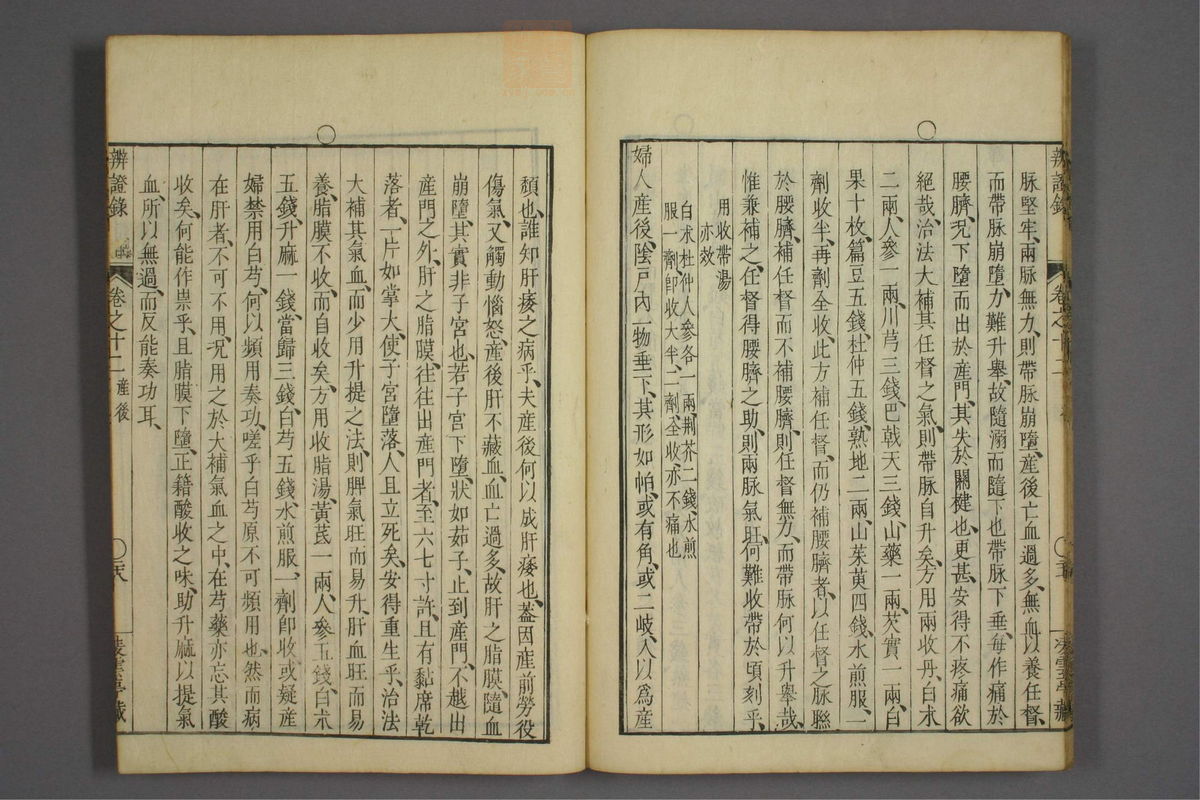 辨證錄
脉堅牢、兩脉無力、則帶脉崩墮、產後亡血過多、無血以養任督、
而帶脉崩墮、力難升舉、故隨溺而隨下也、帶脉下垂、每作痛於
腰臍、況下墮而出於產門、其失於關楗也、更甚、安得不疼痛欲
絕哉、治法大補其任督之氣、則帶脉自升矣、方用兩收丹、白朮
二兩、人參一兩、川芎三錢、巴戟天三錢、山藥一兩、芡實一兩、白
果十枚、篇豆五錢、杜仲五錢、熟地二兩、山茱萸四錢、水煎服、一
劑收半、再劑全收、此方補任督、而仍補腰臍者、以任督之脉聯
於腰臍、補任督而不補腰臍、則任督無力、而帶脉何以升舉哉、
惟兼補之、任督得腰臍之助、則兩脉氣旺、何難收帶於頃刻乎、
用收帶湯
亦效
白朮杜仲人參各一兩荆芥二錢、水煎
服一劑、卽收大半、二劑、全收、亦不痛也
婦人產後、陰戶內一物垂下、其形如帕、或有角、或二岐、人以爲產
頹也、誰知肝痿之病乎、夫產後何以成肝痿也、蓋因產前勞役
傷氣、又觸動惱怒、產後肝不藏血、血亡過多、故肝之脂膜、隨血
崩墮、其實非子宮也、若子宮下墮、狀如茄子、止到產門、不越出
產門之外、肝之脂膜、往往出產門者、至六七寸許、且有黏席乾
落者、一片如掌大、使子宮墮落、人且立死矣、安得重生乎、治法
大補其氣血、而少用升提之法、則脾氣旺而易升、肝血旺而易
養、脂膜不收、而自收矣、方用收脂湯、黃芪一兩、人參五錢、白朮
五錢、升麻一錢、當歸三錢、白芍五錢、水煎服、一劑卽收、或疑產
婦禁用白芍、何以頻用奏功、嗟乎、白芍原不可頻用也、然而病
在肝者、不可不用、况用之於大補氣血之中、在芍藥亦忘其酸
收矣、何能作祟乎、且脂膜下墮、正籍酸收之味、助升麻以提氣
血、所以無過、而反能奏功耳、
辨證錄
卷之十二 產後